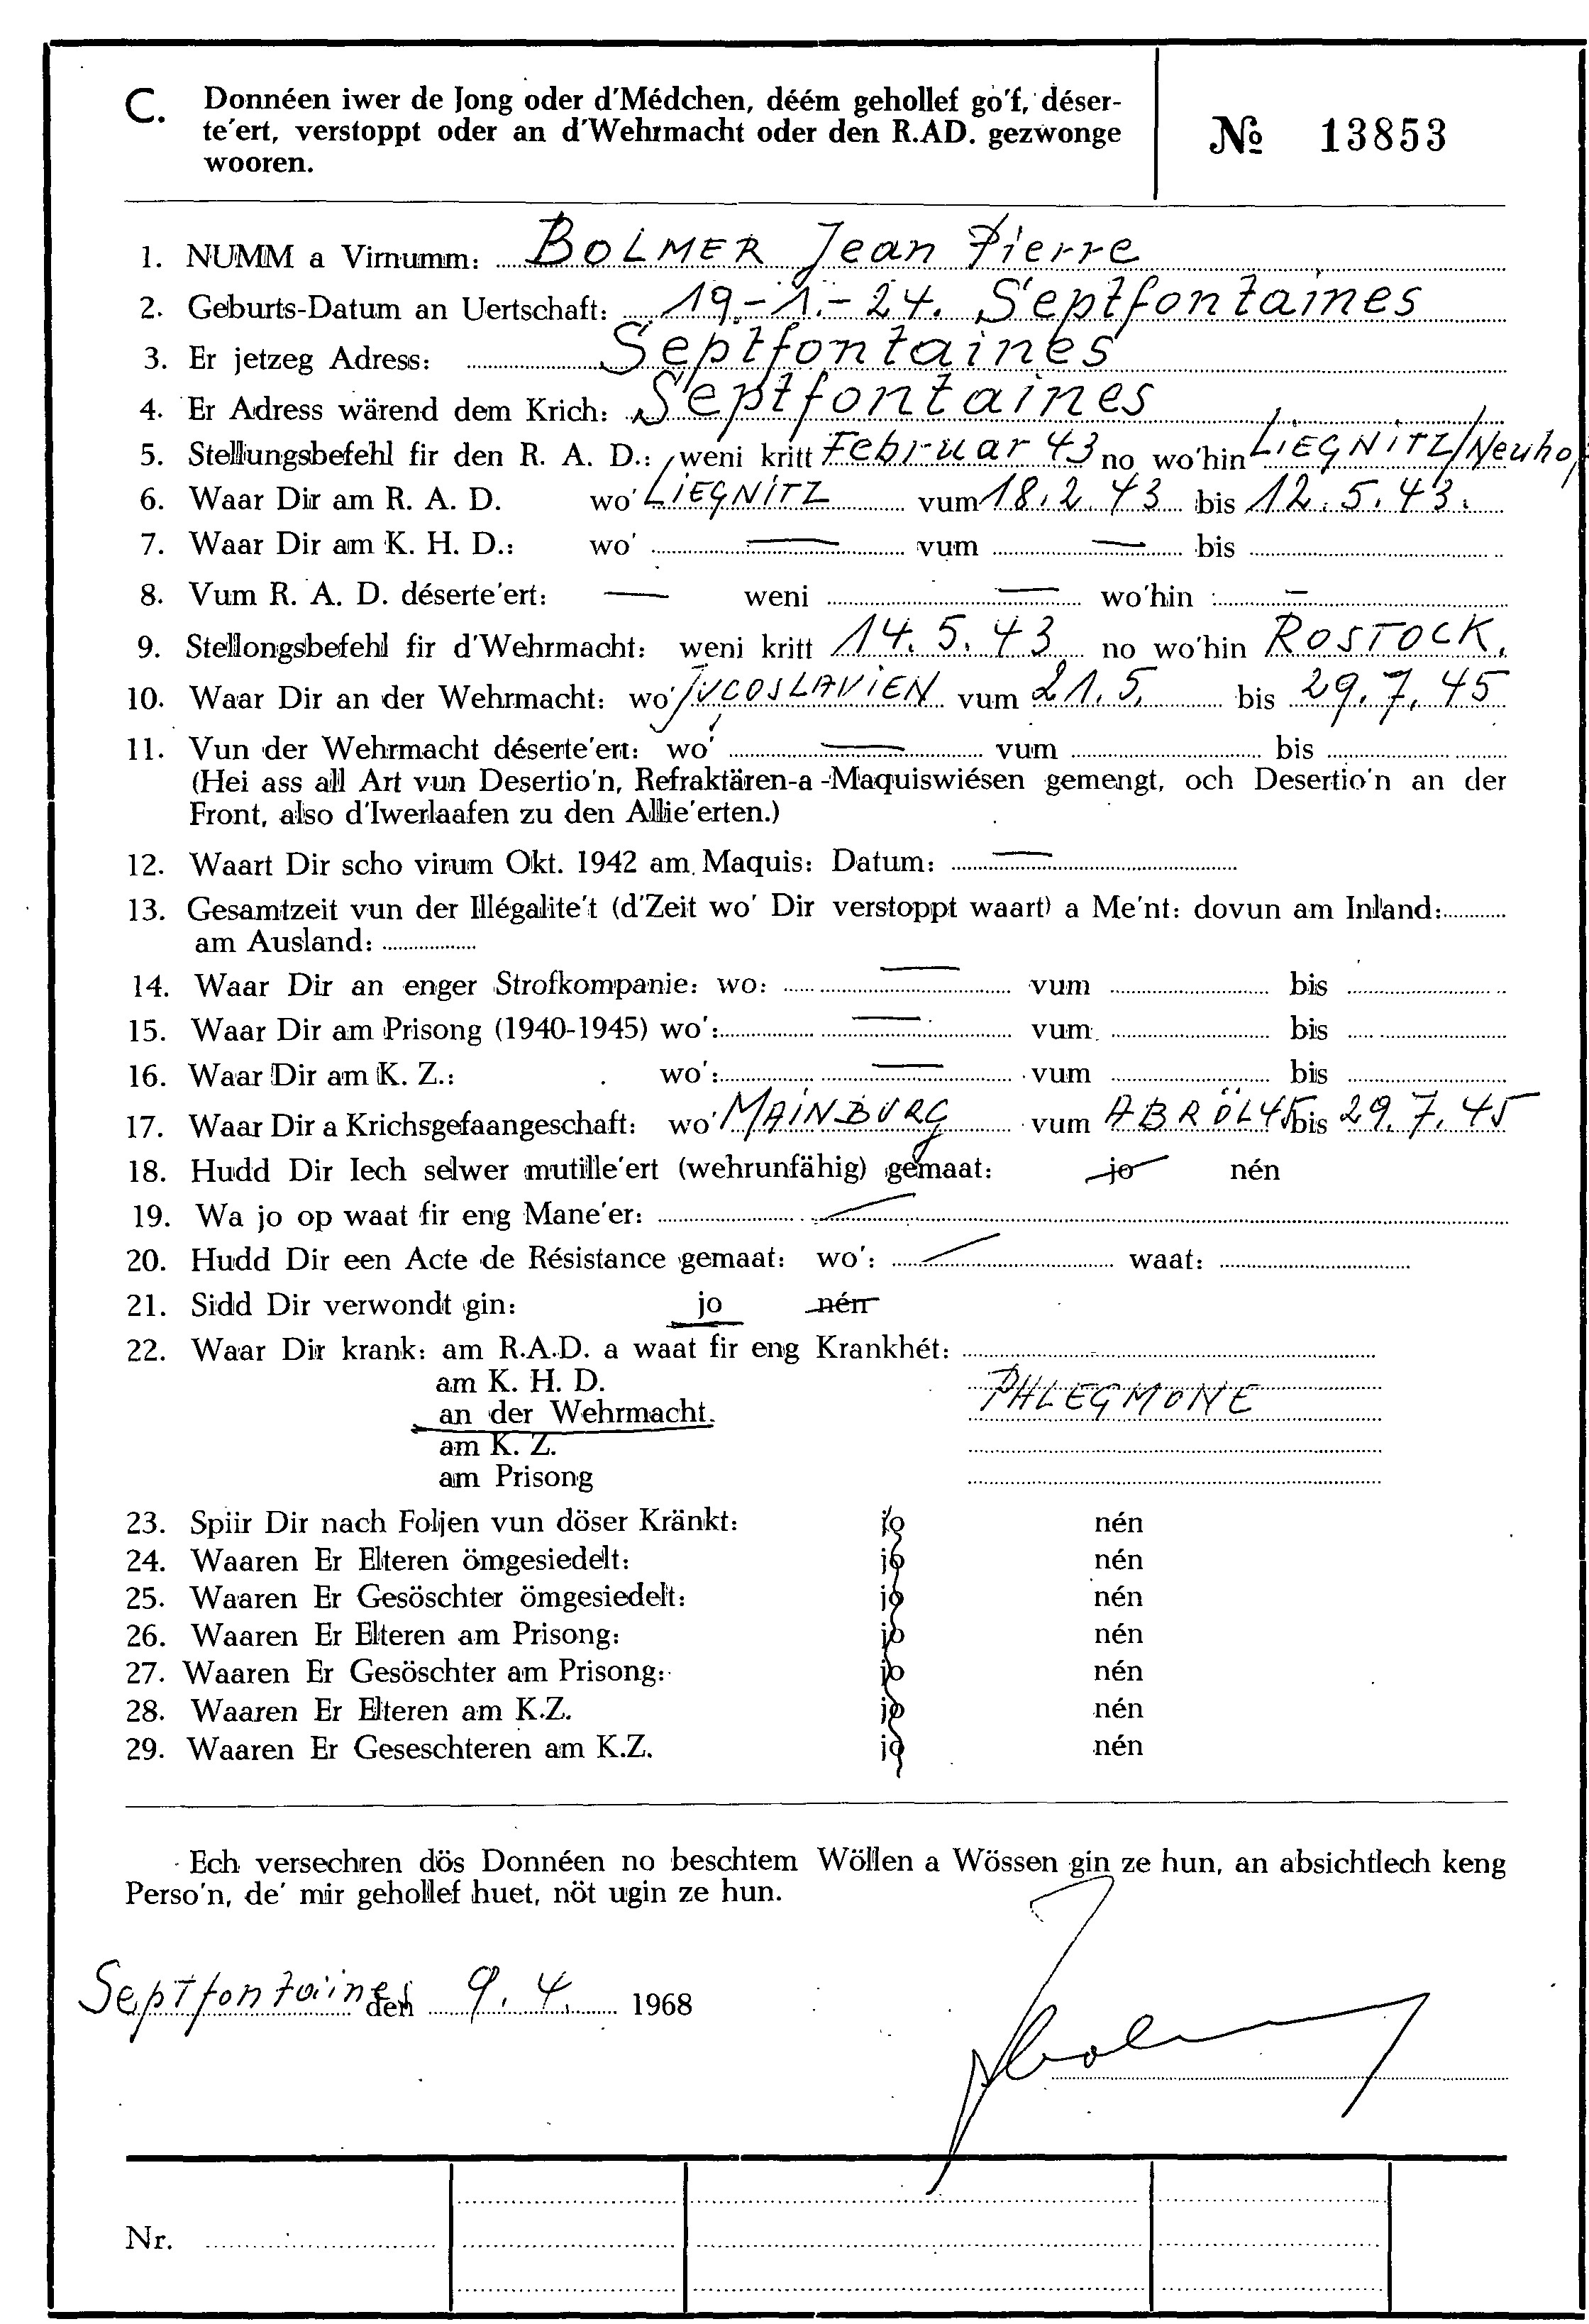 C. Donnéen iwer de Jong oder d'Médchen, déém gehollef go'f, déser-
te'ert, verstoppt oder an d'Wehrmacht oder den R.AD. gezwonge
wooren.
№ 13853
1. NUMM a Virnumm: BOLMER Jean Pierre
2. Geburts-Datum an Uertschaft: 19.-1.-24. Septfontaines
3. Er jetzeg Adress: Septfontaines
4. Er Adress wärend dem Krich: Septfontaines
5. Stellungsbefehl fir den R. A. D.: weni kritt Februar 43 no wo'hin LIEGNITZ/Neuhof
6. Waar Dir am R. A. D. wo' LIEGNITZ vum 18.2.43 bis 12.5.43.
7. Waar Dir am K. H. D.: wo' — vum — bis
8. Vum R. A. D. déserte'ert: — weni — wo'hin : –
9. Stellongsbefehl fir d'Wehrmacht: weni kritt 14.5.43 no wo'hin ROSTOCK.
10. Waar Dir an der Wehrmacht: wo' JUGOSLAVIEN vum 21.5. bis 29.7.45
11. Vun der Wehrmacht déserte'ert: wo' — vum bis
(Hei ass all Art vun Desertio'n, Refraktären-a -Maquiswiésen gemengt, och Desertio'n an der
Front, also d'Iwerlaafen zu den Allie'erten.)
12. Waart Dir scho virum Okt. 1942 am Maquis: Datum: —
13. Gesamtzeit vun der Illégalite't (d'Zeit wo' Dir verstoppt waart) a Me'nt: dovun am Inland:
am Ausland:
14. Waar Dir an enger Strofkompanie: wo: — vum bis
15. Waar Dir am Prisong (1940-1945) wo': — vum bis
16. Waar Dir am K. Z.: wo': — vum bis
17. Waar Dir a Krichsgefaangeschaft: wo' MAINBURG vum ABRÖL 45 bis 29.7.45
18. Hudd Dir Iech selwer mutille'ert (wehrunfähig) gemaat: jo nén
19. Wa jo op waat fir eng Mane'er:
20. Hudd Dir een Acte de Résistance gemaat: wo': waat:
21. Sidd Dir verwondt gin: jo nén
22. Waar Dir krank: am R.A.D. a waat fir eng Krankhét:
am K. H. D.
an der Wehrmacht. PHLEGMONE
am K. Z.
am Prisong
23. Spiir Dir nach Foljen vun döser Kränkt: jo nén
24. Waaren Er Elteren ömgesiedelt: jo nén
25. Waaren Er Gesöschter ömgesiedelt: jo nén
26. Waaren Er Elteren am Prisong: jo nén
27. Waaren Er Gesöschter am Prisong: jo nén
28. Waaren Er Elteren am K.Z. jo nén
29. Waaren Er Geseschteren am K.Z. jo nén
Ech versechren dös Donnéen no beschtem Wöllen a Wössen gin ze hun, an absichtlech keng
Perso'n, de' mir gehollef huet, nöt ugin ze hun.
Septfontaines den 9.4. 1968
Nr.